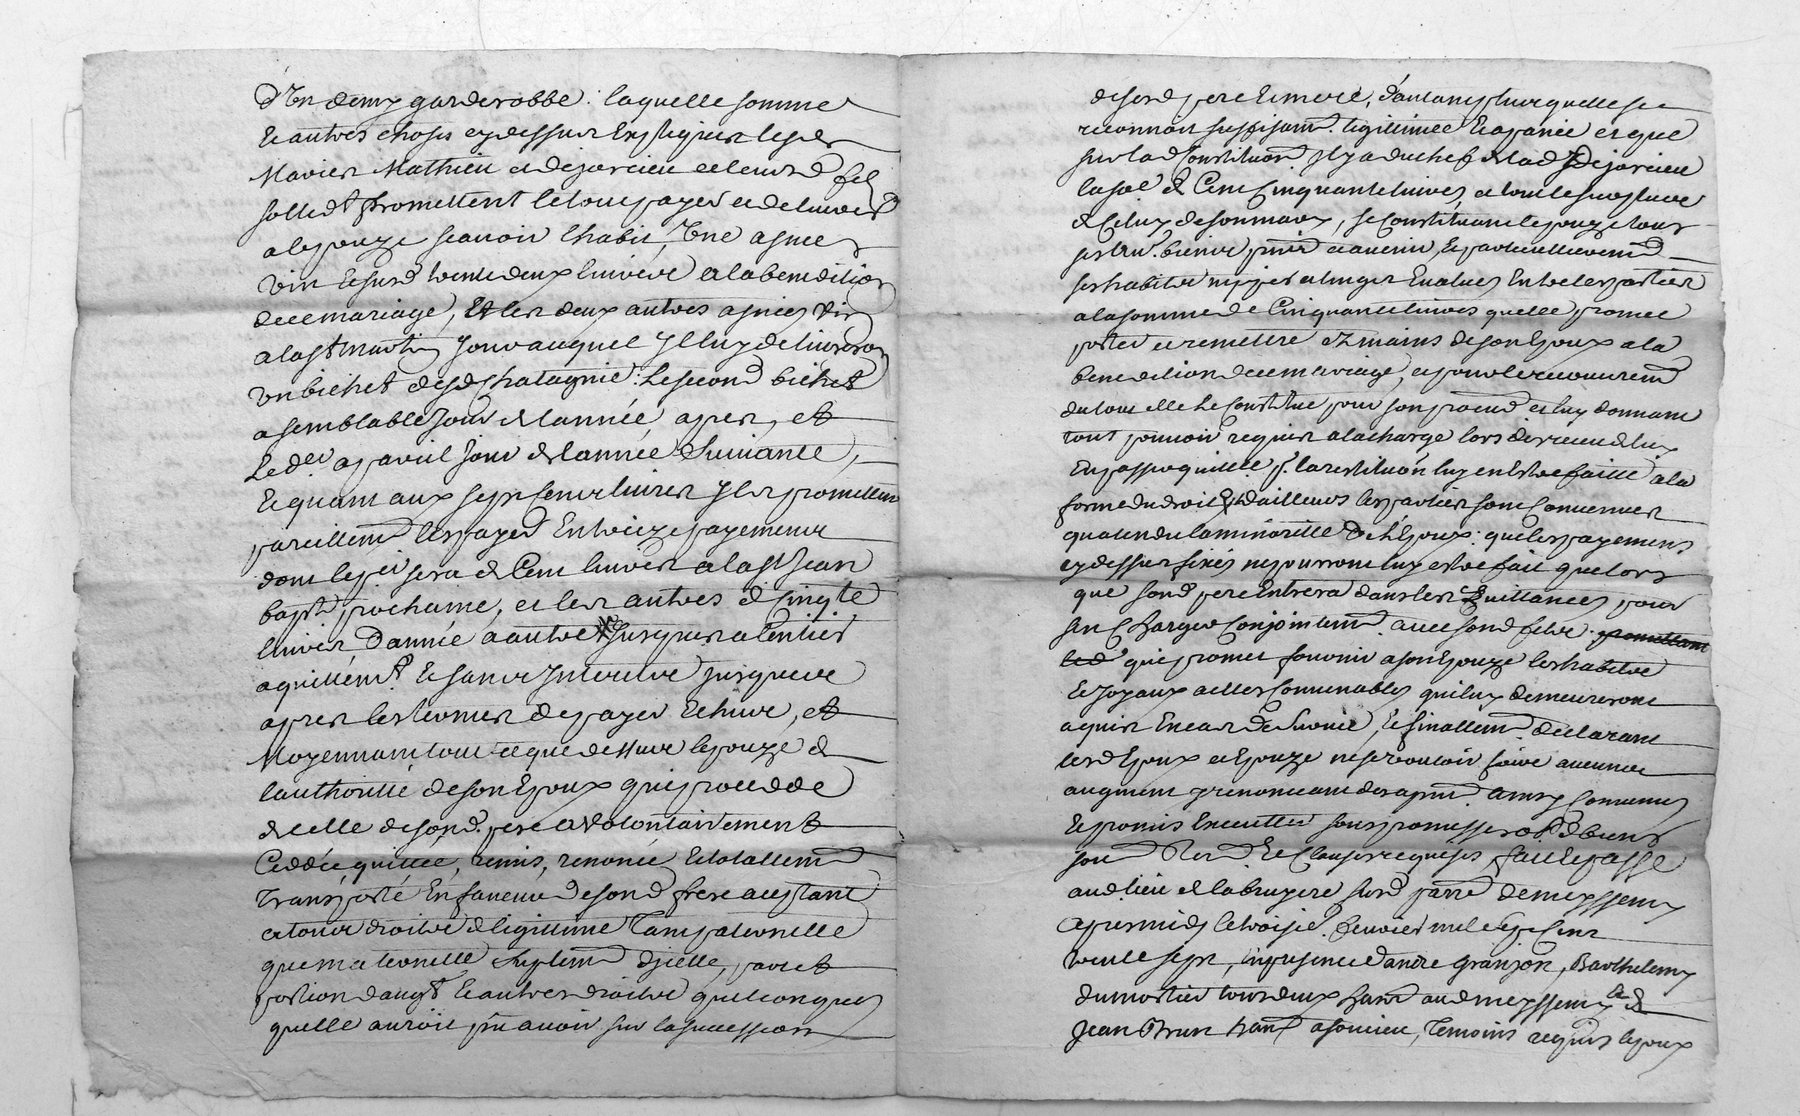 d'Un demy garderobbe : laquelle somme
et autres choses cy dessus expliquées lesd
Mariés Mathieu et dejarcieu et leurd fils
sollid.t promettent le tout payer et delivrer
a lepouze scavoir l'habit, Une asnée
vin et surd trente deux livres a la benediction
de ce mariage, et les deux autres asnées vin
a la s.t martin jour auquel Ils luy delivreront
un bichet desd Chatagnie : le second bichet
a semblable jour de l'année apres, et
le d.er a pareil jour de l'année suivante,
et quant aux sept cent livres Ils promettent
pareillem.t les payer en treize payements
dont le p.er sera de Cent livres a la s.t Jean
bap.te prochaine, et les autres de cinq.te
livres d'année a autre jusques a l'entier
aquittem.t et sans interest jusques
apres les termes de payer echus, et
Moyennant tout ce que dessus lepouze de
l'authorité de son Epoux qui procedde
de celle de sond. pere a volontairement
Ceddé quitté, remis, renoncé et totallem.t
transporté En faveur de sond frere acceptant
et tous droits de legitime tant paternelle
que maternelle suplem.t d'jcelle, part et
portion d'augt et autres droits quelconques
quelle auroit pu avoir sur la succession
de sesd pere et mere, d'autant plus quelle se
reconnoit suffisam.t legitimée et apanée et que
sur lad Constitution Il y a du chef de lad dejarcieu
la so.e de Cent Cinquante livres, et tout le surplus
de Celuy de son mary, se Constituant lepouze tous
ses au.s biens p.nts et avenir, et particulierem.t
ses habits nipes et linges Evalués Entre les parties
a la somme de Cinquante livres quelle promet
porter et remettre ez mains de son Epoux a la
benediction de ce mariage, et pour le recouvrem.t
du tout elle le Constitue pour son procur et luy donnant
tout pouvoir requis a la charge lors des receus de luy
En passer quitte p.r la restitution luy en Estre faitte a la
forme du droit d'ailleurs les parties sont Convenues
qu'atendu la minorité de l'Epoux : que les payemens
cy dessus fixés ne pourront luy estre fait que lors
que sond pere Entrera dans les quittances pour
sen Charger Conjointem.t avec sond fils
qui promet fournir a son Epouze les habits
et Joyaux a elle Convenables qui luy demeureront
aquis En cas de survie, et finallem.t declarant
lesd Epoux et Epouze ne se vouloir faire aucuns
augment y renonceant des a p.nt ainsy Convenu
et promis Executter sous promesses ob. de biens
soum renon et Clauses requises fait et passé
aud lieu de la bruyere surd parre de meyssemy
apres midy le troisie. fevrier mil sept Cent
trente sept, en presence d'andre granjon, Barthelemy
dumortier tous deux hans aud meyssemy et de
Jean Brun han a sourieu, temoins requis lepoux